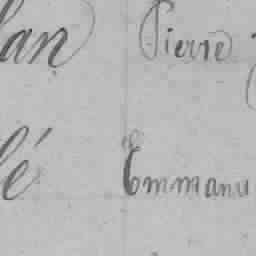 lan Pierre
lé Emmanu